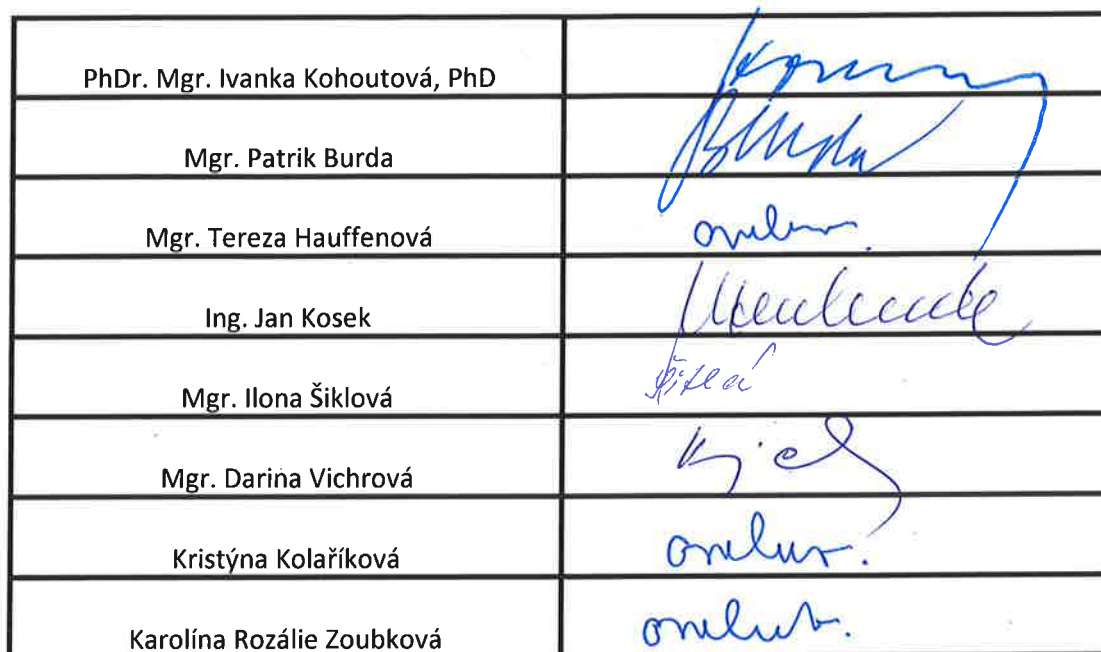 PhDr. Mgr. Ivanka Kohoutová, PhD
Mgr. Patrik Burda
Mgr. Tereza Hauffenová
omluv.
Ing. Jan Kosek
Mgr. Ilona Šiklová
Mgr. Darina Vichrová
Kristýna Kolaříková
omluv.
Karolína Rozálie Zoubková
omluv.